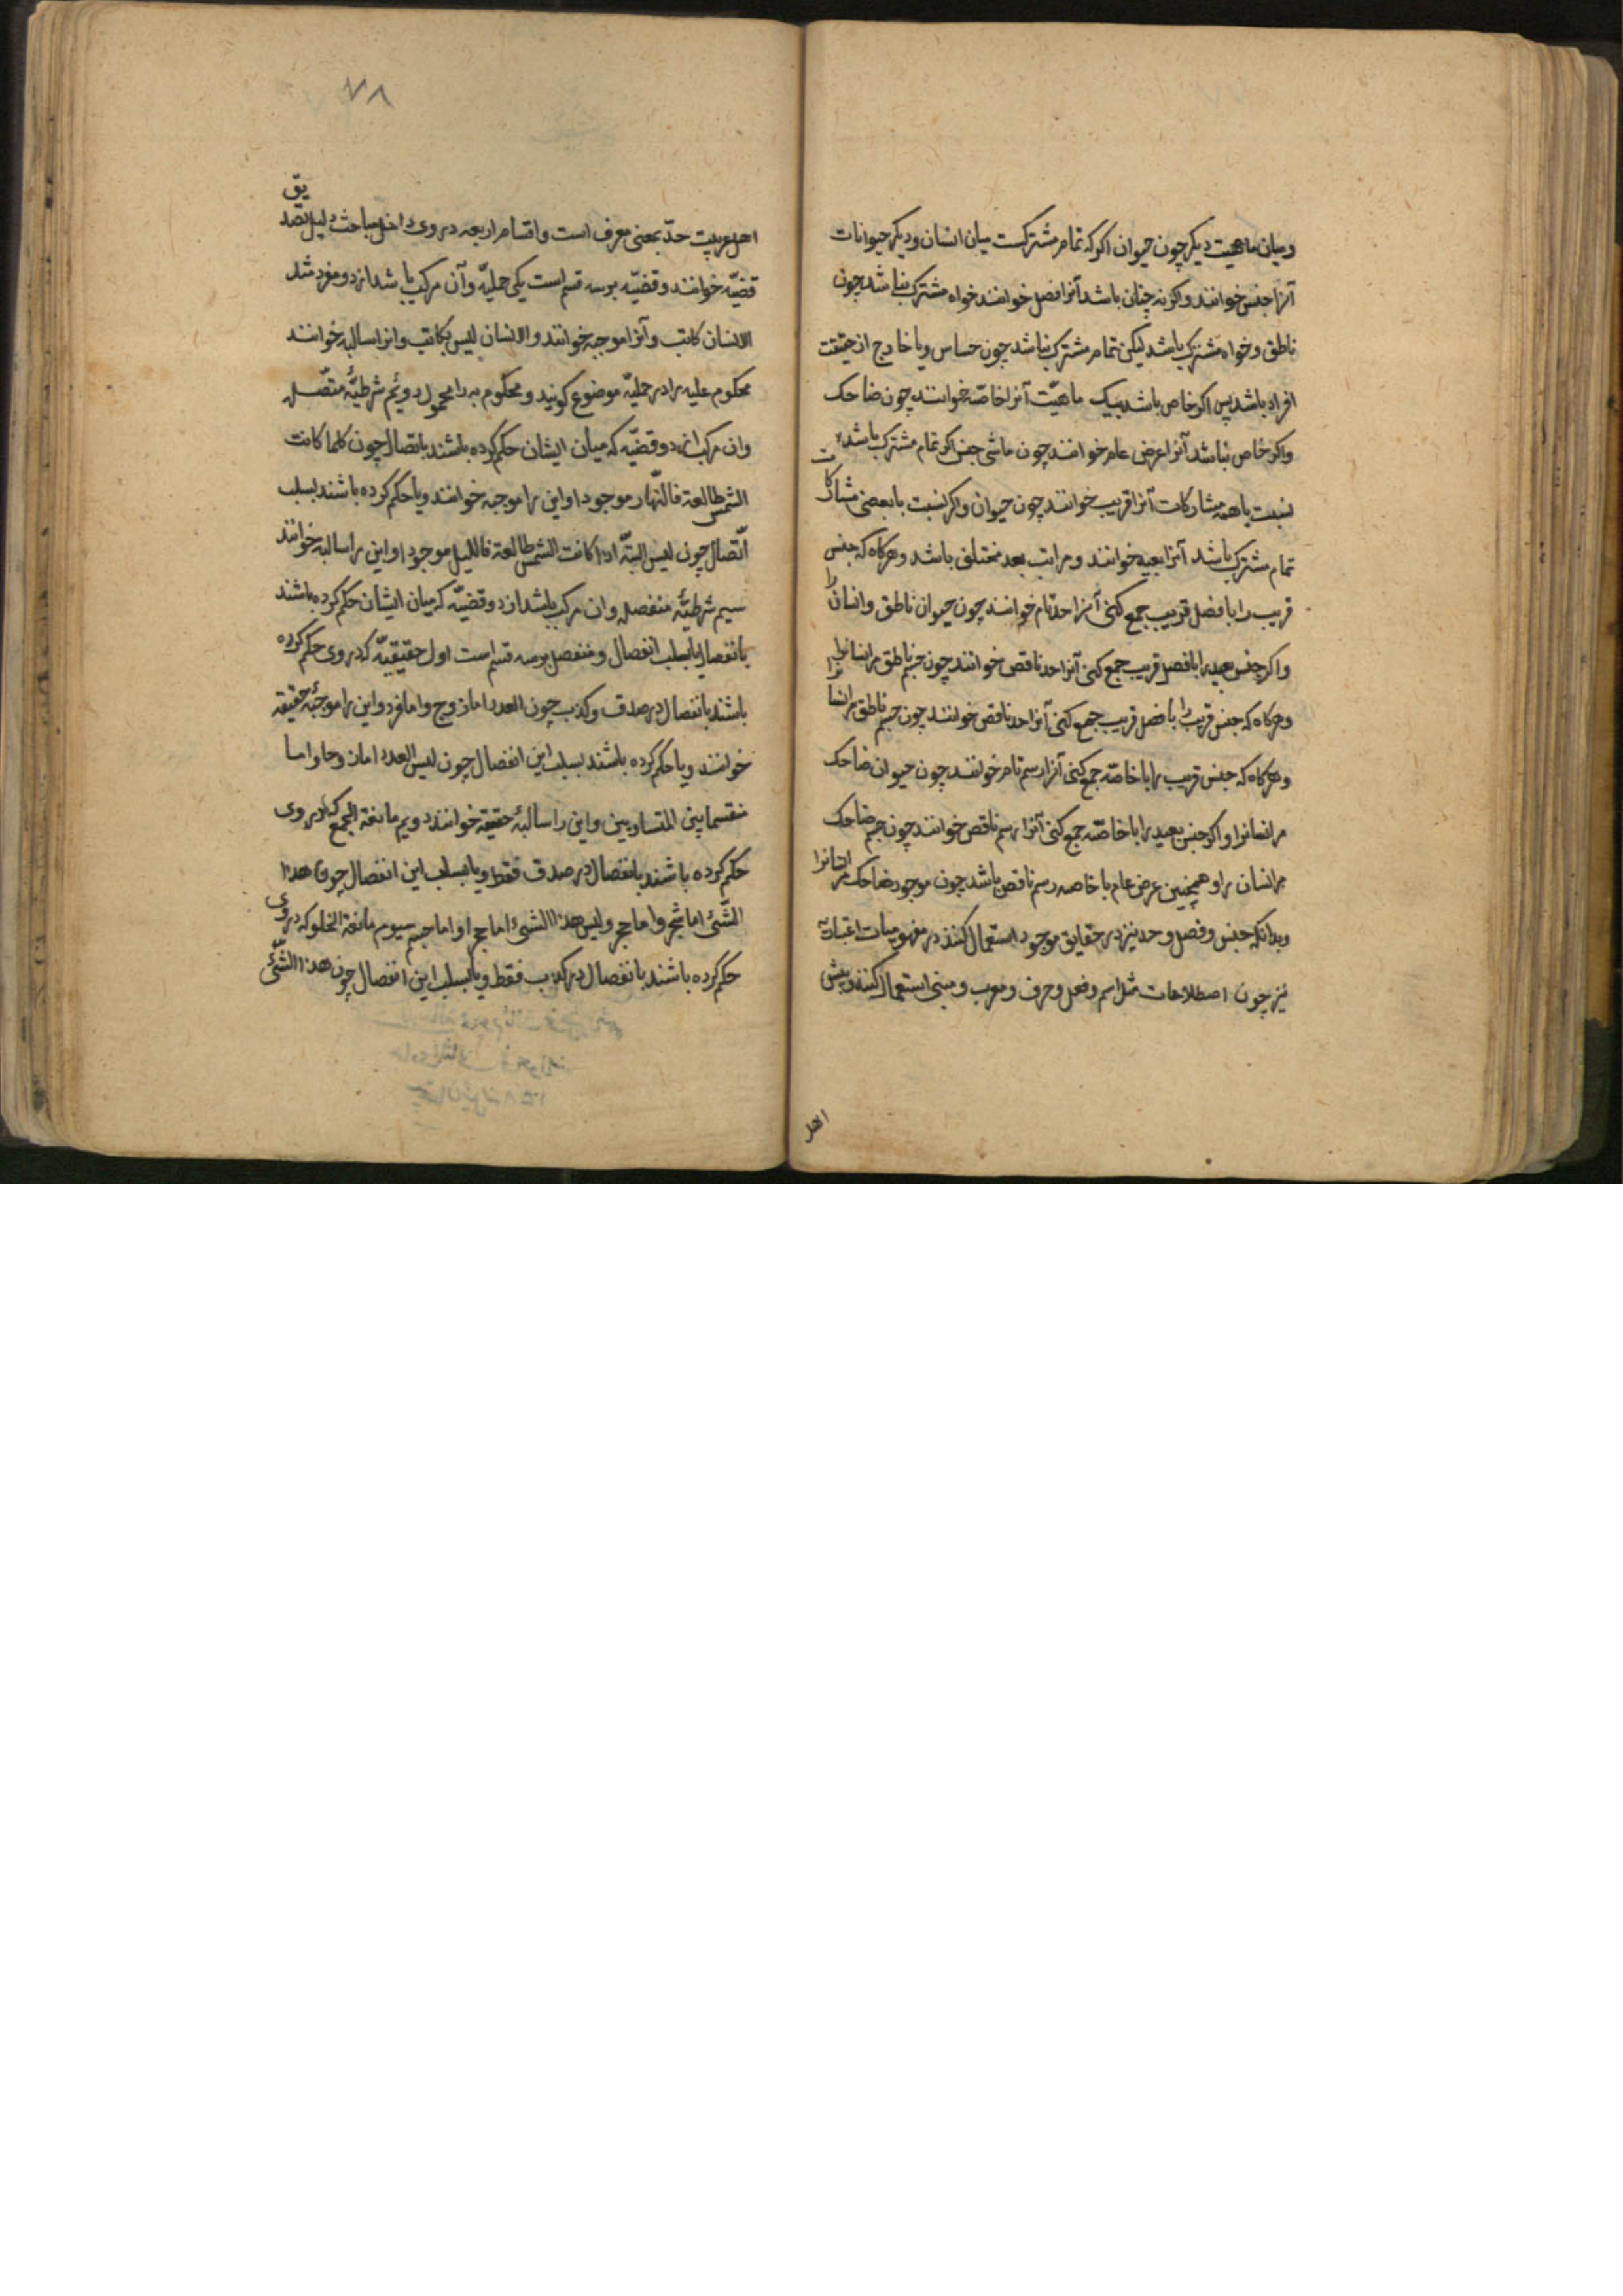 ومیان ماهیت دیکر چون حیوان اکر که تمام مشترکست میان انسان و دیکر حیوانات
آنرا جنس خوانند و اکر نه چنان باشد آنرا فصل خوانند خواه مشترک نباشد چون
ناطق و خواه مشترک باشد لیکن تمام مشترک نباشد چون حساس و یا خارج از حقیقت
افراد باشد پس اکر خاص باشد بیک ماهیّت آنرا خاصّه خوانند چون ضاحک
واکر خاص نباشد آنرا عرض عام خوانند چون ماشی جنس اکر تمام مشترک باشد
نسبت با همه مشارکات آنرا قریب خوانند چون حیوان و اکر نسبت با بعضی مشارکات
تمام مشترک باشد آنرا بعید خوانند و مراتب بعد مختلف باشد و هرکاه که جنس
قریب را با فصل قریب جمع کنی آنرا حد تام خوانند چون حیوان ناطق و انسان را
واکر جنس بعید را با فصل قریب جمع کنی آنرا حد ناقص خوانند چون جسم ناطق مر انسانرا
وهرکاه که جنس قریب را با فصل قریب جمع کنی آنرا حد ناقص خوانند چون جسم ناطق مر انسانرا
وهرکاه که جنس قریب را با خاصّه جمع کنی آنرا رسم تام خوانند چون حیوان ضاحک
مر انسانرا و اکر جنس بعید را با خاصّه جمع کنی آنرا رسم ناقص خوانند چون جسم ضاحک
مر انسان را و همچنین عرض عام با خاصه رسم ناقص باشد چون موجود ضاحک مر انسانرا
وبدانکه جنس و فصل و حد نیز در حقایق موجود استعمال کنند در مفهومات اعتباریّه
نیز چون اصطلاحات مثل اسم و فعل و حرف و معرب و مبنی استعمال کنند و پیش
اهل
٧٨
اهل عربیت حدّ بمعنی معرف است و اقسام اربعه در وی داخل مباحث دلیل تصدیق
قضیّه خوانند و قضیّه بر سه قسم است یکی حملیّه و آن مرکب باشد از دو مفرد مثل
الانسان کاتب و آنرا موجبه خوانند و الانسان لیس بکاتب و انرا سالبه خوانند
محکوم علیه را در حملیّه موضوع کویند و محکوم به را محمول دویّم شرطیّهٔ متّصله
وان مرکب از دو قضیّه که میان ایشان حکم کرده باشند باتصال چون کلما کانت
الشمس طالعة فالنّهار موجود و این را موجبه خوانند و یا حکم کرده باشند بسلب
اتّصال چون لیس البتّه اذا کانت الشمس طالعة فاللیل موجود و این را سالبه خوانند
سیم شرطیّهٔ منفصله و ان مرکب باشد از دو قضیّه که میان ایشان حکم کرده باشند
بانفصال یا بسلب انفصال و منفصل بر سه قسم است اول حقیقیّه که در وی حکم کرده
باشند بانفصال در صدق و کذب چون العدد اما زوج و اما فرد و این را موجبهٔ حقیقه
خوانند و یا حکم کرده باشند بسلب این انفصال چون لیس العدد اما زوجا و اما
منقسما بین المتساویین و این را سالبهٔ حقیقه خوانند دویم مانعة الجمع که در وی
حکم کرده باشند بانفصال در صدق فقط و یا بسلب این انفصال چون هذا
الشّئ اما شجر و اما حجر و لیس هذا الشئ اما حجر او اما جسم سیوم مانعة الخلو که در وی
حکم کرده باشند بانفصال در کذب فقط و یا بسلب این انفصال چون هذا الشّئ